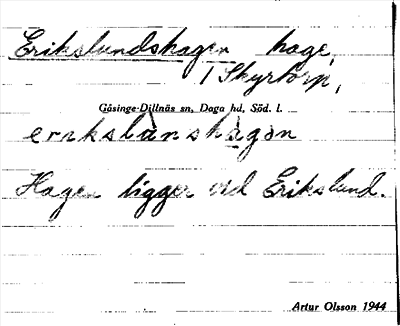 Erikslundshagen hage,
/ Skyrtorp,
Gåsinge-Dillnäs sn, Daga hd, Söd. l.
erikslånshågən
Hagen ligger vid Erikslund.
Artur Olsson 1944